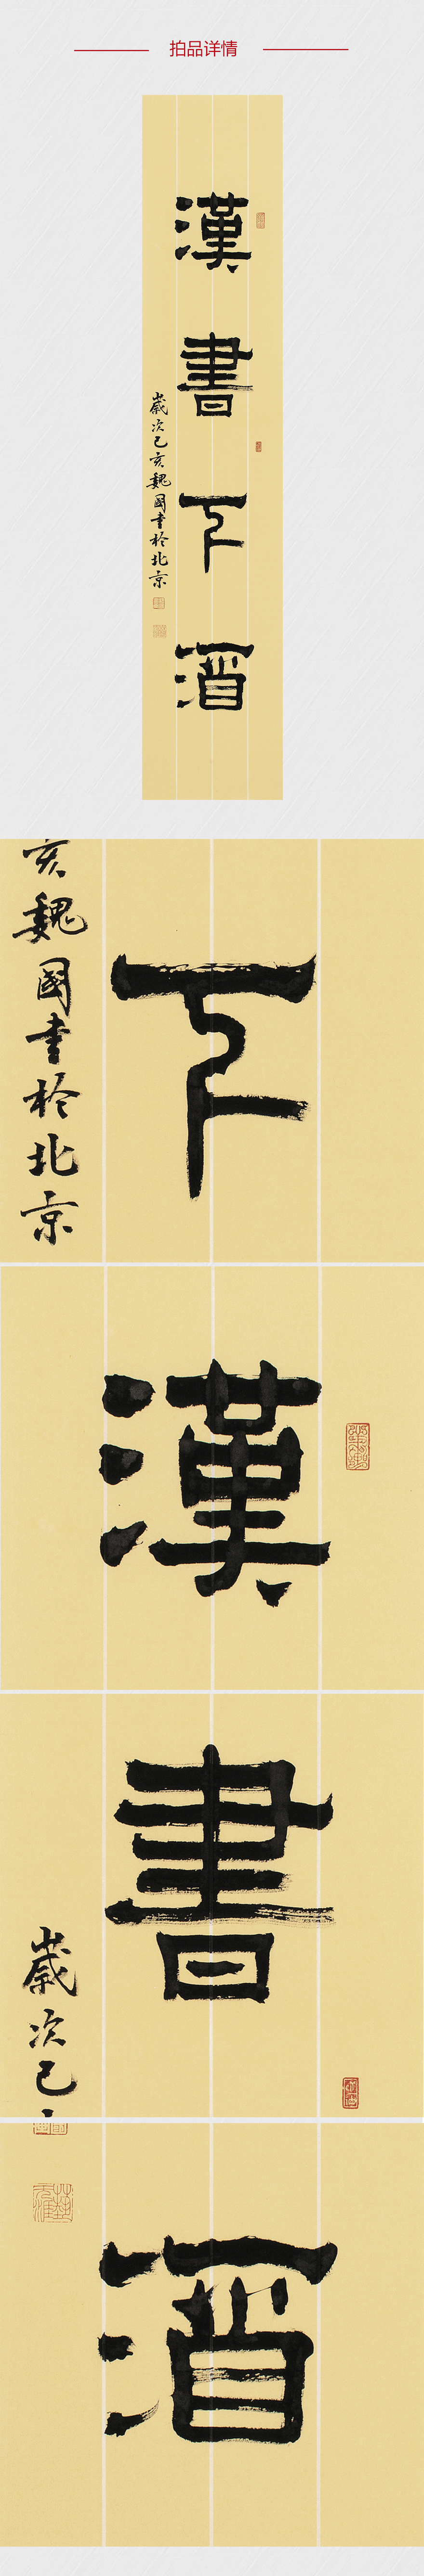 拍品详情
漢書下酒
歲次己亥魏國書於北京
亥魏國書於北京
下
漢
書
歲次己
酒